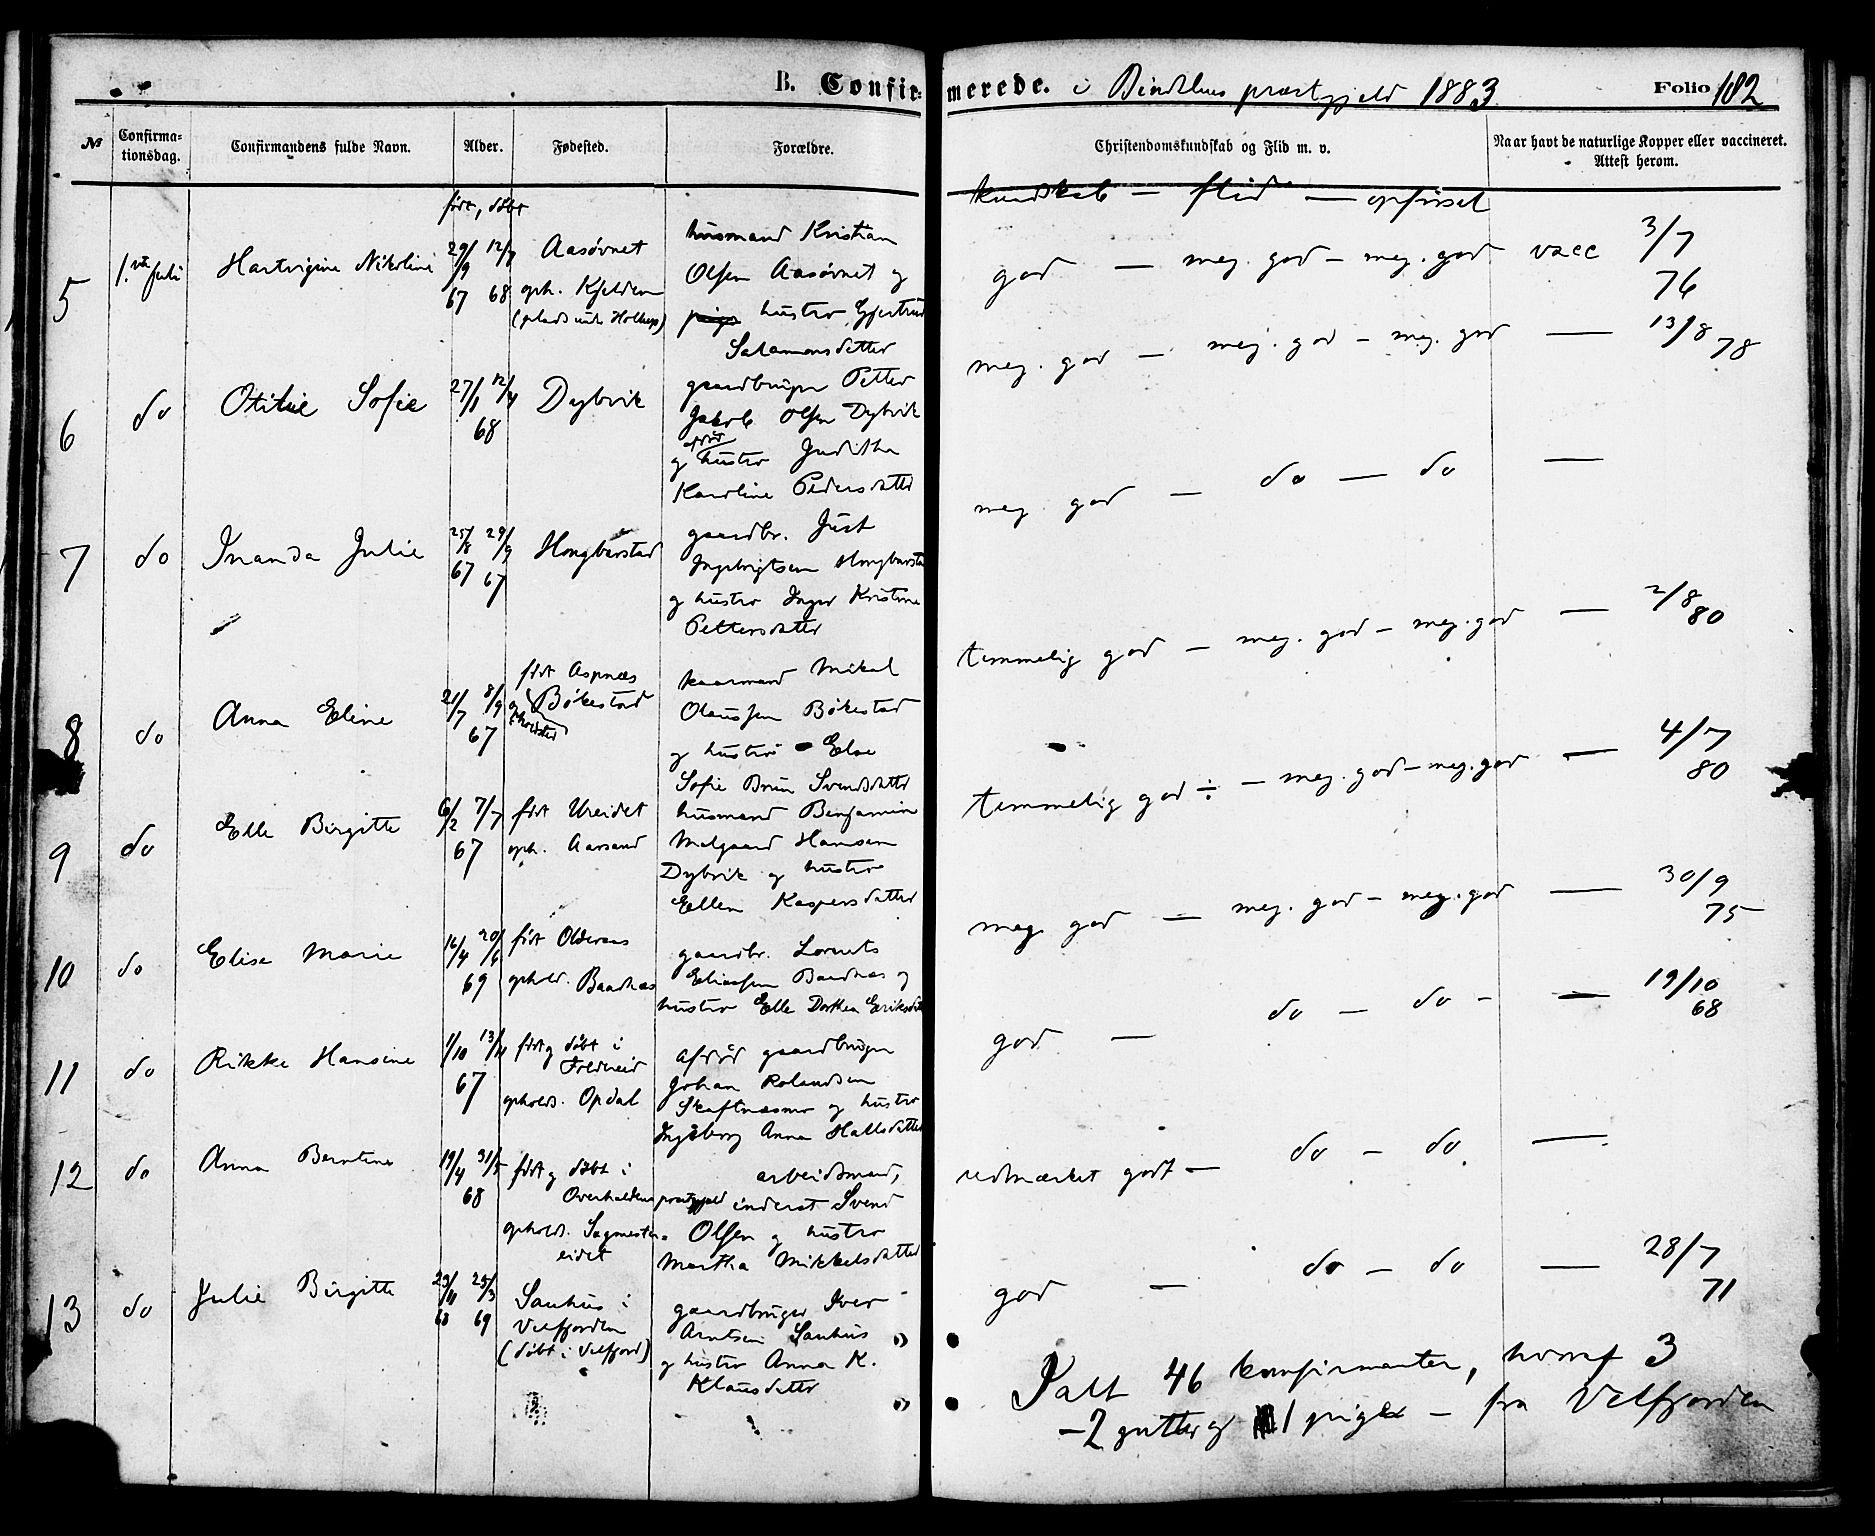 B. Confirmerede. i Bindalens præstegjeld 1883 Folio 182
№ Confirmationsdag. Confirmandens fulde Navn. Alder. Fødested. Forældre. Christendomskundskab og Flid m. v. Naar havt de naturlige Kopper eller vaccineret. Attest herom.
født, døbt
kundskab — flid — opførsel
5 1.ste juli Hartvigine Nikoline 29/9 67 12/7 68
Aasøvnet
oph. Kjelden
husmand Kristian
Olsen Aasøvnet og
hustro Gjertrud
Salamonsdatter
god — meg. god — meg. god vacc 3/7 76
6 do Otilie Sofie 27/1 12/4 68 Dybvik
gaardbruger Petter
Jakob Olsen Dybvik
og hustro Juditha
Karoline Pedersdatter
meg. god — meg. god — meg. god — 13/8 78
7 do Inanda Julie 25/8 67 29/9 67 Hongbarstad
gaardbr. Just
Ingebrigtsen Hongbarstad
og hustro Inger Kristine
Pettersdatter
meg god — do — do —
8 do Anna Eline 21/7 8/9 67
født Aspnæs
Bøkestad
kaarmand Mikal
Olaussen Bøkestad
og hustro Else
Sofie Brun Svendsdatter
temmelig god — meg. god — meg. god — 2/8 80
9 do Elle Birgitte 6/2 7/7 67
født Ureidet
oph. Aarsand
husmand Benjamin
Melgaard Hansen
Dybvik og hustro
Ellen Kaspersdatter
temmelig god ÷ — meg. god — meg. god — 4/7 80
10 do Elise Marie 16/4 20/6 69
født Olderaas
ophold. Baadnæs
gaardbr. Lornts
Eliassen Baadnæs og
hustro Elle Dorthea Eriksdatter
meg god — meg. god — meg. god — 30/9 75
11 do Rikke Hansine 1/10 13/11 67
født og døbt i
Foldereid
opholds. Opdal
afdød gaardbruger
Johan Rolandsen
Skaftnæsmo og hustro
Ingeborg Anna Hallsdatter
god — do — do — — 19/10 68
12 do Anna Berntine 19/4 31/5 68
født og døbt i
Overhaldens præstegjeld
opholds. Sagmester-
eidet
arbeidsmand,
inderst Svend
Olsen og hustro
Martha Mikkelsdatter
udmærket godt — do — do —
13 do Julie Birgitte 23/11 68 25/3 69
Sauhus i
Velfjorden
(døbt i Velfjord)
gaardbruger Iver
Arntsen Sauhus
og hustro Anna K.
Klausdatter
god — do — do — 28/7 71
Ialt 46 konfirmanter, hvoraf 3
— 2 gutter og 1 pige — fra Velfjorden